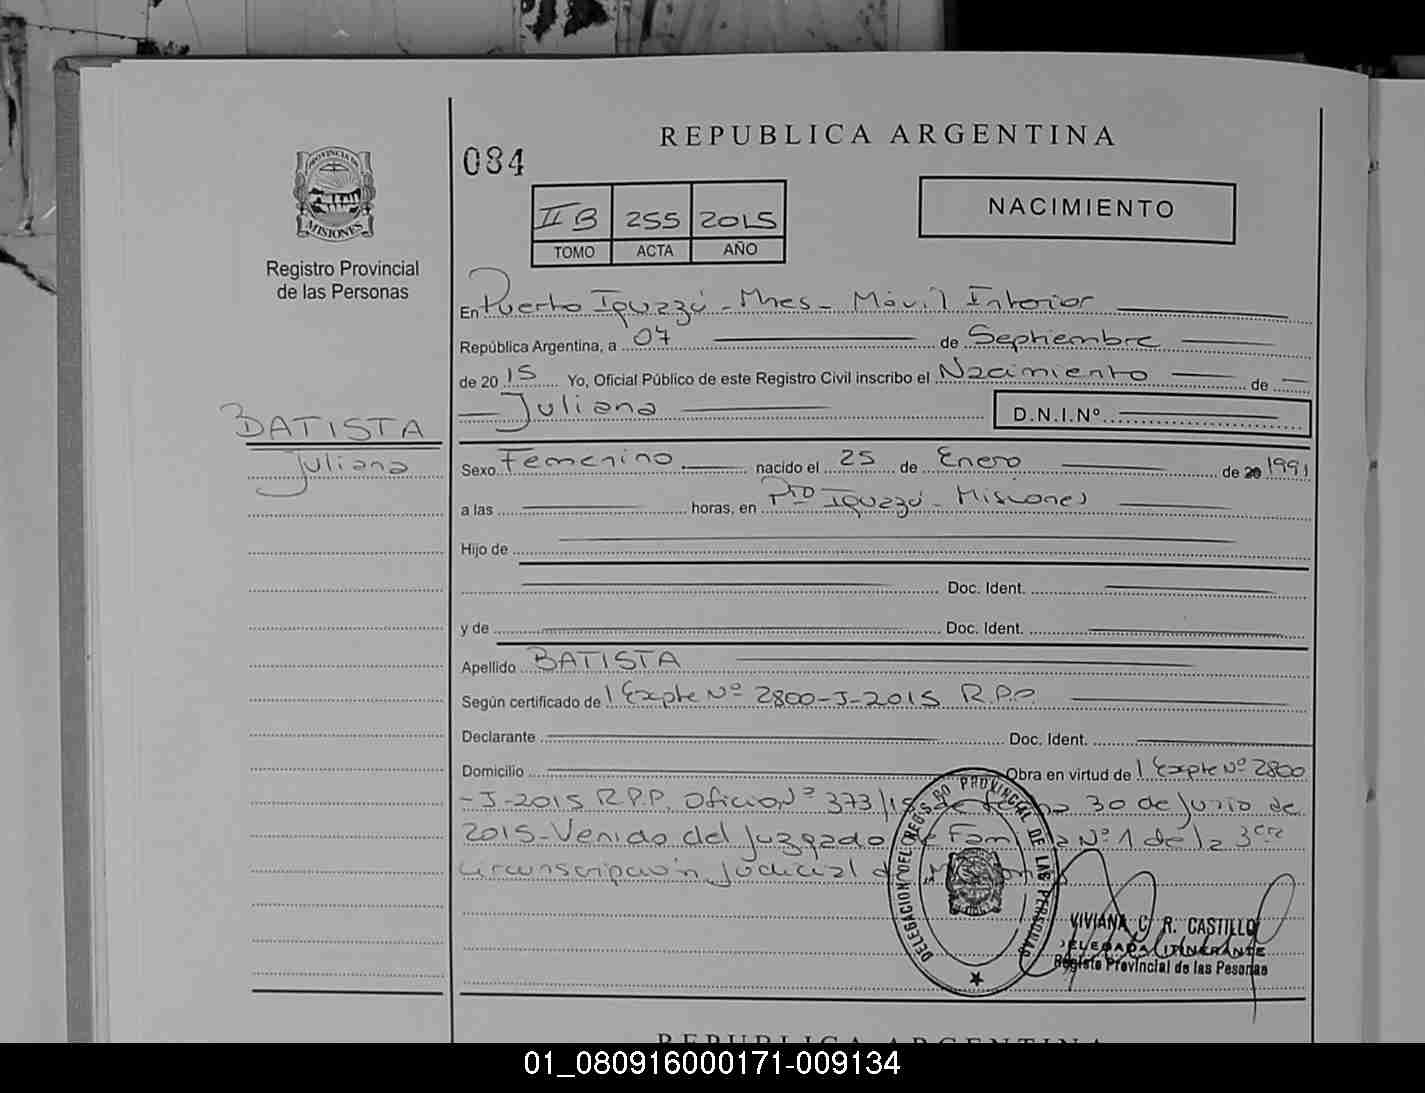 REPUBLICA ARGENTINA
084
PROVINCIA DE
MISIONES
Registro Provincial
de las Personas
II B 255 2015
TOMO ACTA AÑO
NACIMIENTO
En Puerto Iguazú - Mnes - Móvil Interior
República Argentina, a 07 de Septiembre
de 2015 Yo, Oficial Público de este Registro Civil inscribo el Nacimiento de
Juliana D.N.I.Nº
BATISTA
Juliana
Sexo Femenino nacido el 25 de Enero de 20 1991
a las horas, en Pto Iguazú - Misiones
Hijo de
Doc. Ident.
y de Doc. Ident.
Apellido BATISTA
Según certificado de | Expte Nº 2800-J-2015 R.P.P.
Declarante Doc. Ident.
Domicilio Obra en virtud de | Expte Nº 2800
-J-2015 R.P.P. Oficio Nº 373/15 de fecha 30 de Junio de
2015-Venido del Juzgado de Familia Nº 1 de la 3era
Circunscripción Judicial de Misiones
DELEGACION DEL REGISTRO PROVINCIAL DE LAS PERSONAS
VIVIANA C. R. CASTILLO
DELEGADA ITINERANTE
Registo Provincial de las Pesonas
REPUBLICA ARGENTINA
01_080916000171-009134